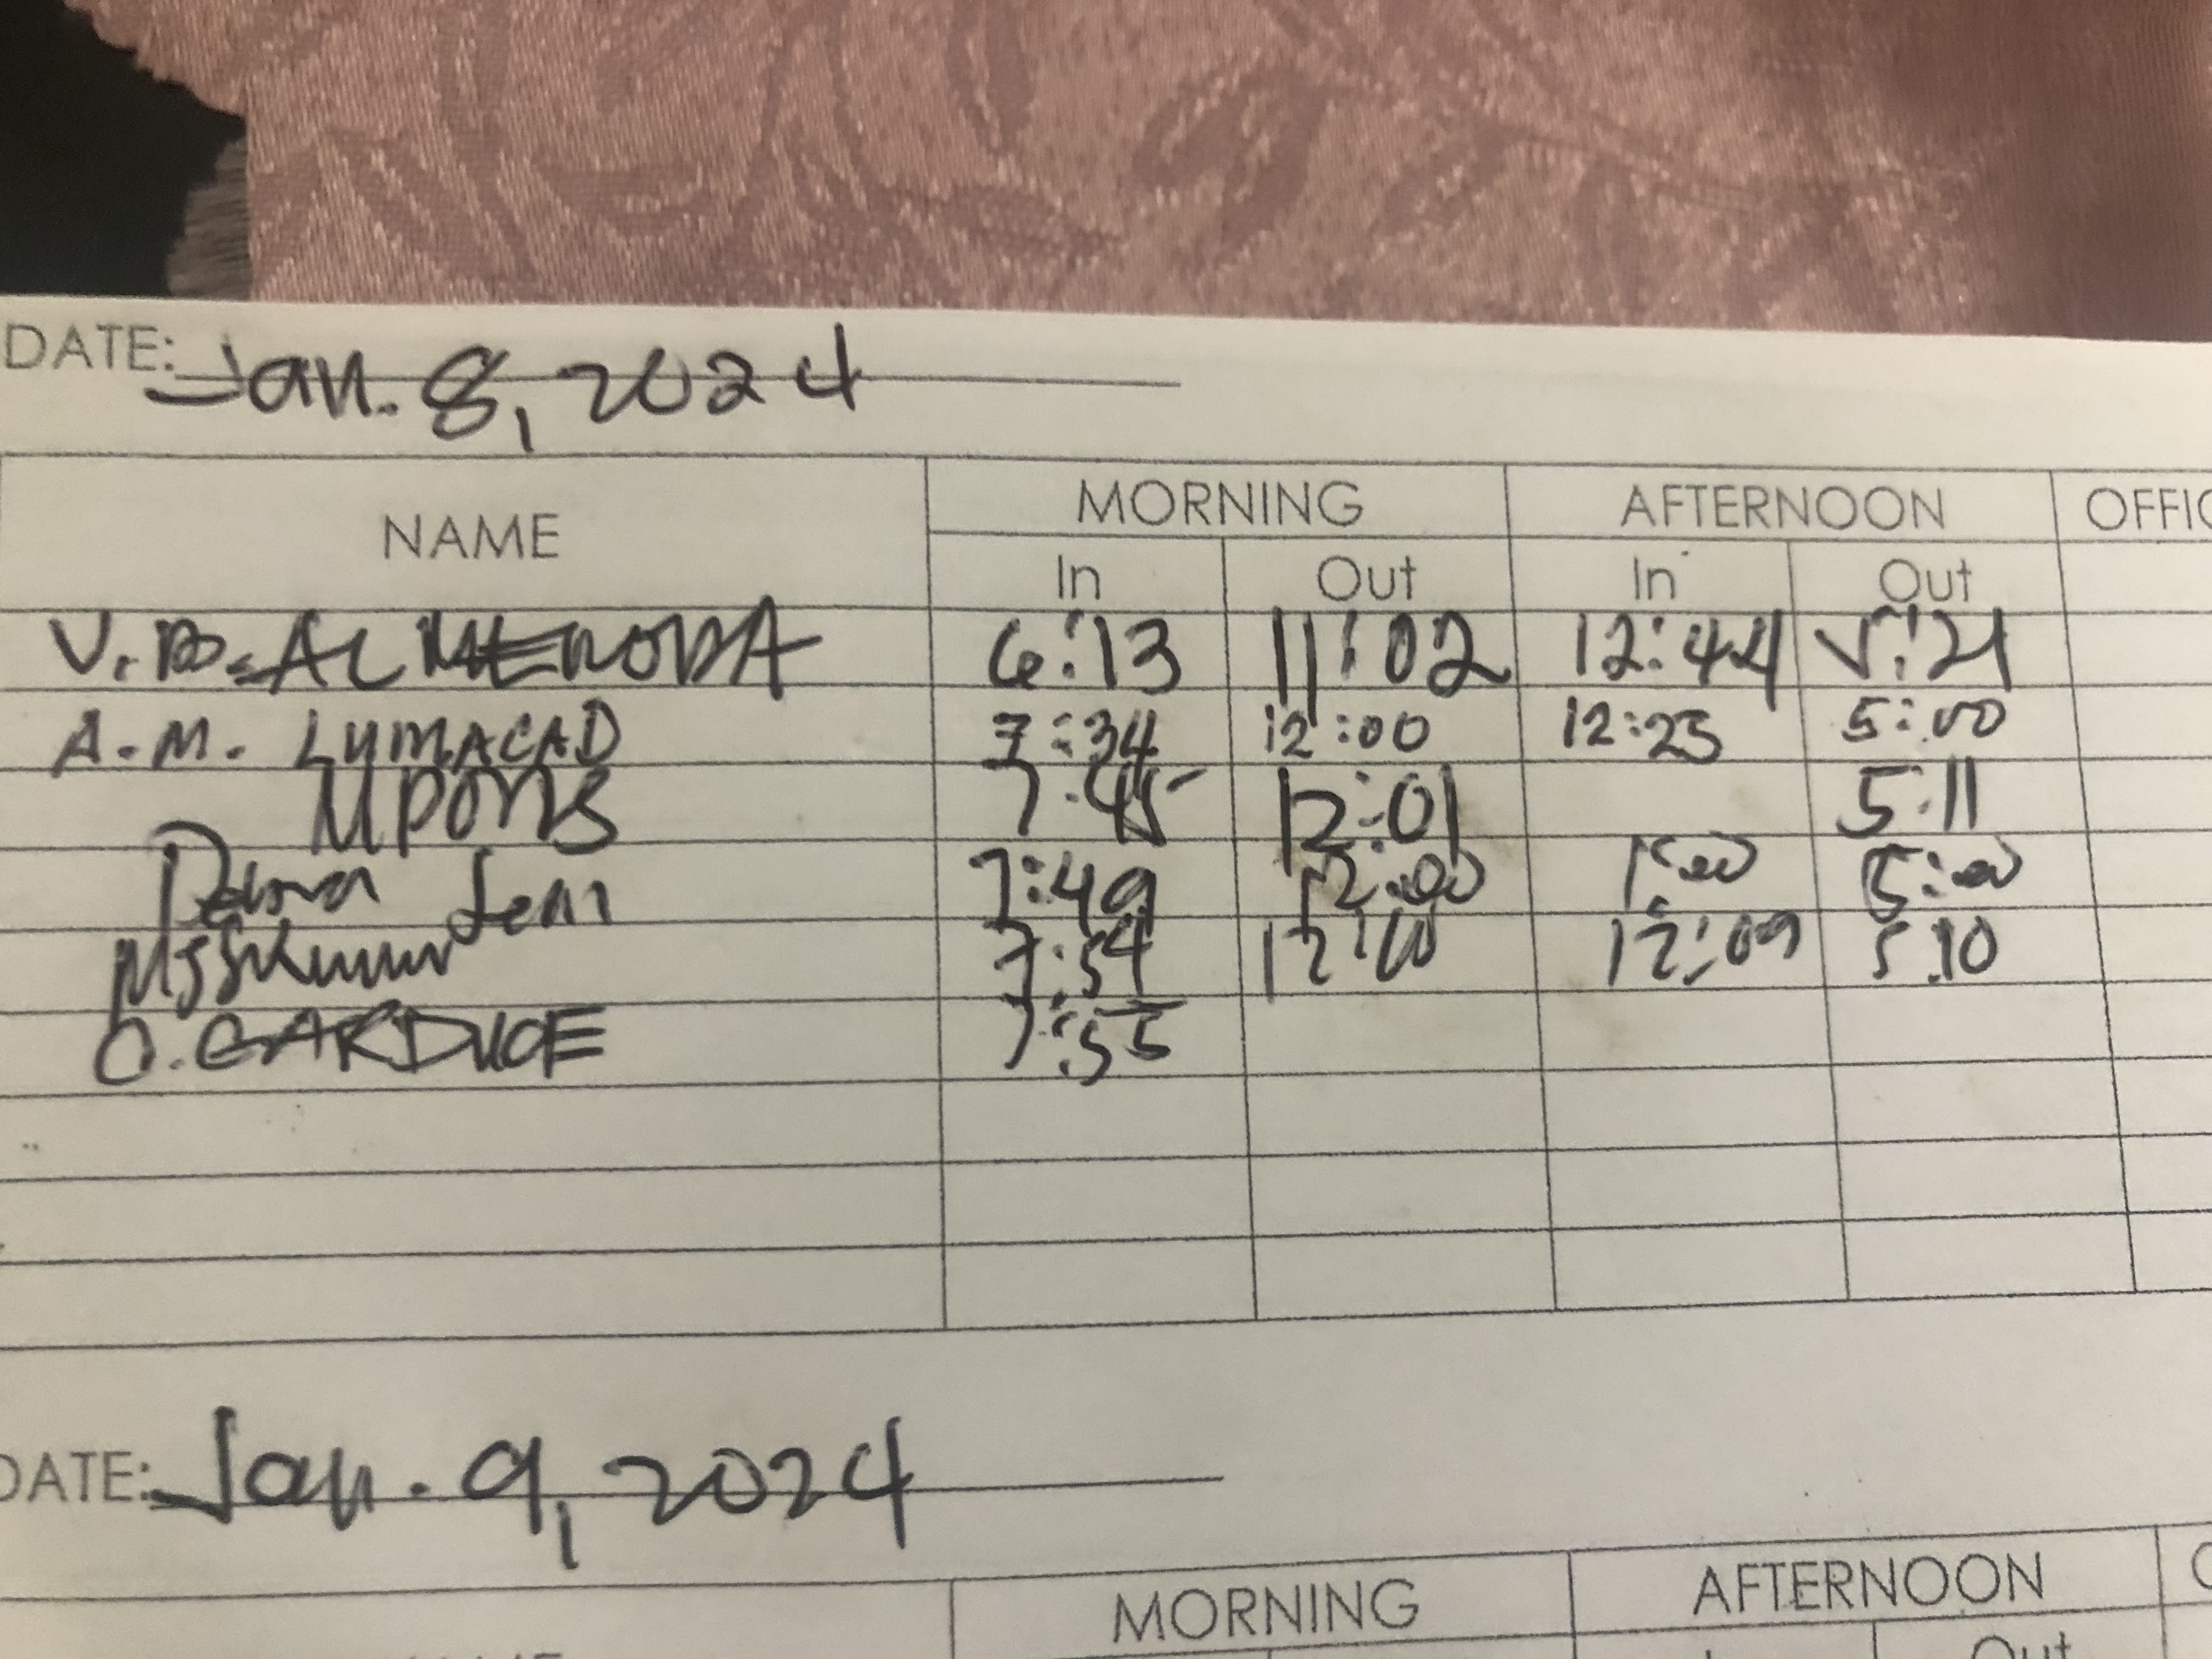 DATE: Jan. 8, 2024
NAME MORNING AFTERNOON OFFIC
In Out In Out
V.B. ALMENODA 6:13 11:02 12:44 5:21
A.M. LUMACAD 7:34 12:00 12:25 5:00
7:45 12:01 5:11
Leni 7:49 12:00 1:00 5:00
7:54 12:10 12:09 5:10
O. GARDUCE 7:55
DATE: Jan. 9, 2024
MORNING AFTERNOON
Out